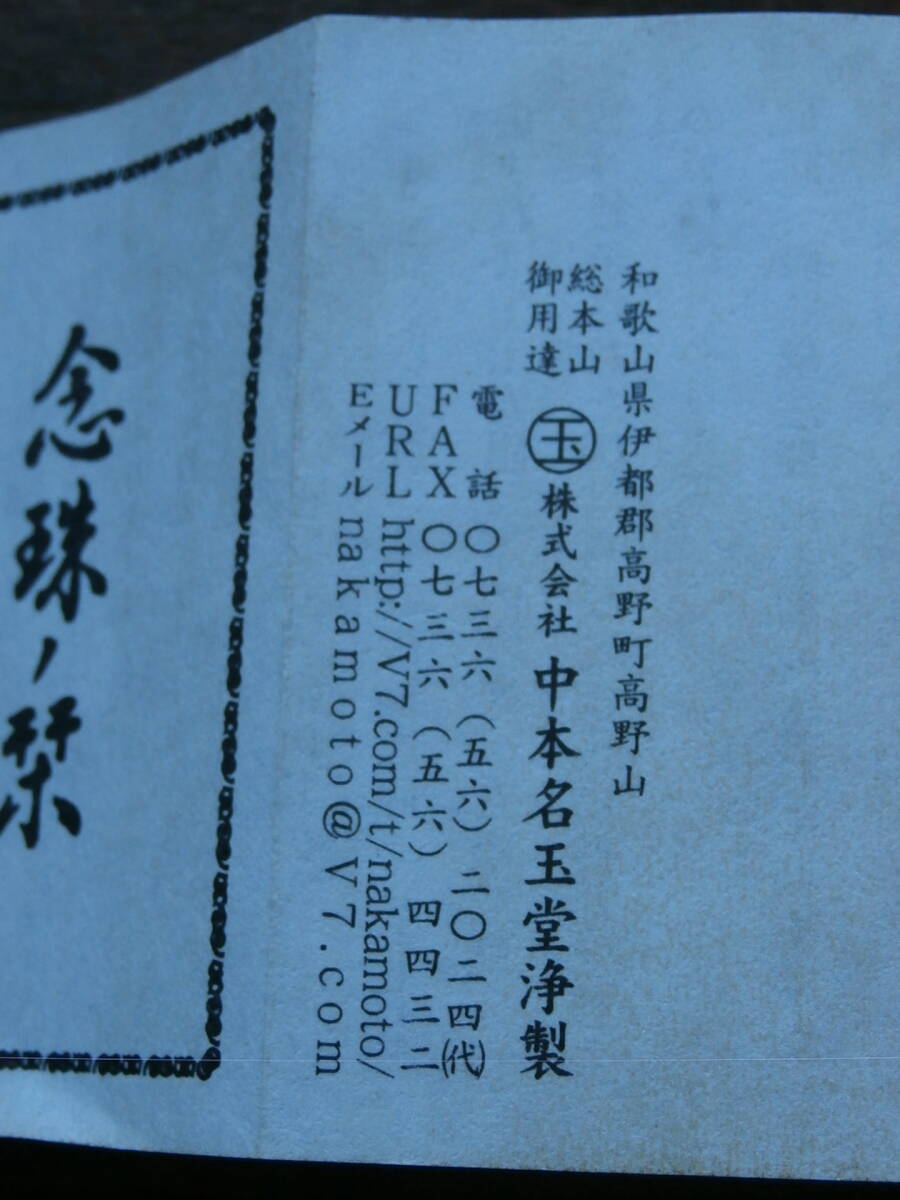 和歌山県伊都郡高野町高野山
総本山
御用達
玉 株式会社 中本名玉堂浄製
電話 〇七三六（五六）二〇二四(代)
FAX 〇七三六（五六）四四三二
URL http://V7.com/t/nakamoto/
Eメール nakamoto@V7.com
念珠ノ栞